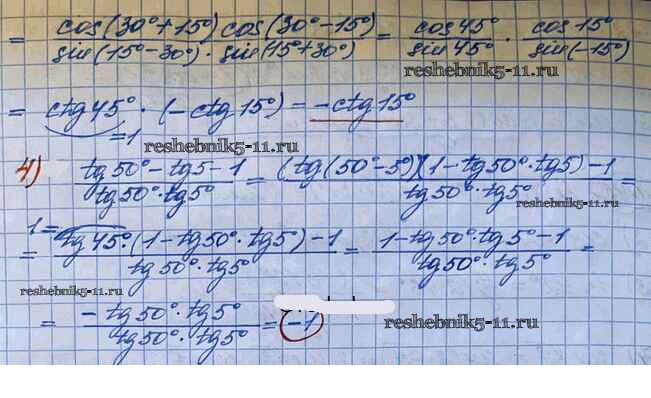 = cos(30°+15°) cos(30°-15°) / sin(15°-30°) · sin(15°+30°) = cos45° / sin45° · cos15° / sin(-15°)
reshebnik5-11.ru
= ctg45° · (-ctg15°) = -ctg15°
=1
reshebnik5-11.ru
4) tg50° - tg5 - 1 / tg50° · tg5° = (tg(50°-5°)(1 - tg50° · tg5) - 1 / tg50° · tg5° =
reshebnik5-11.ru
1=
= tg45° · (1 - tg50° · tg5°) - 1 / tg50° · tg5° = 1 - tg50° · tg5° - 1 / tg50° · tg5° =
reshebnik5-11.ru
= -tg50° · tg5° / tg50° · tg5° = -1
reshebnik5-11.ru